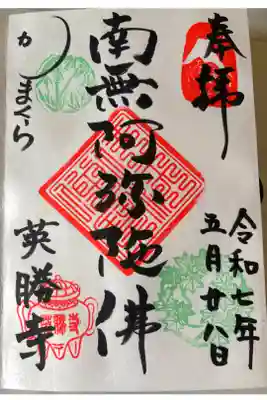 奉拝
令和七年
五月廿八日
南無阿弥陀佛
かまくら
英勝寺